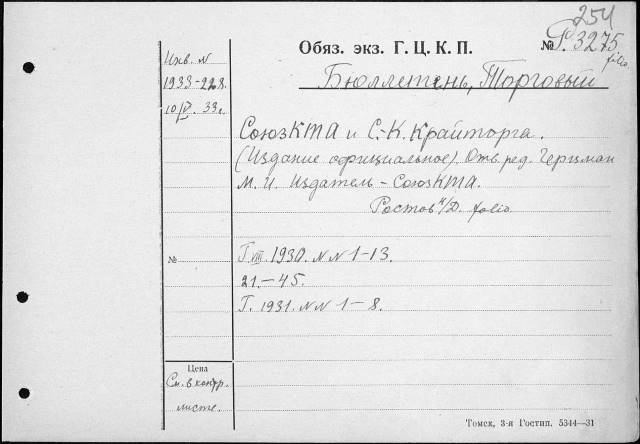 254
Обяз. экз. Г. Ц. К. П.
№ P. 3275
folio
Инв. N
1933-228.
10/V. 33г.
Бюллетень, Торговый
СоюзКТА и С.-К. Крайторга.
(Издание официальное). Отв. ред. Гергиман
М. И. Издатель - СоюзКТА.
Ростов н/Д. folio
№
Г. VIII. 1930. N N 1-13.
21.-45.
Г. 1931. N N 1-8.
Цена
См. в контр.
листе.
Томск, 3-я Гостип. 5344—31